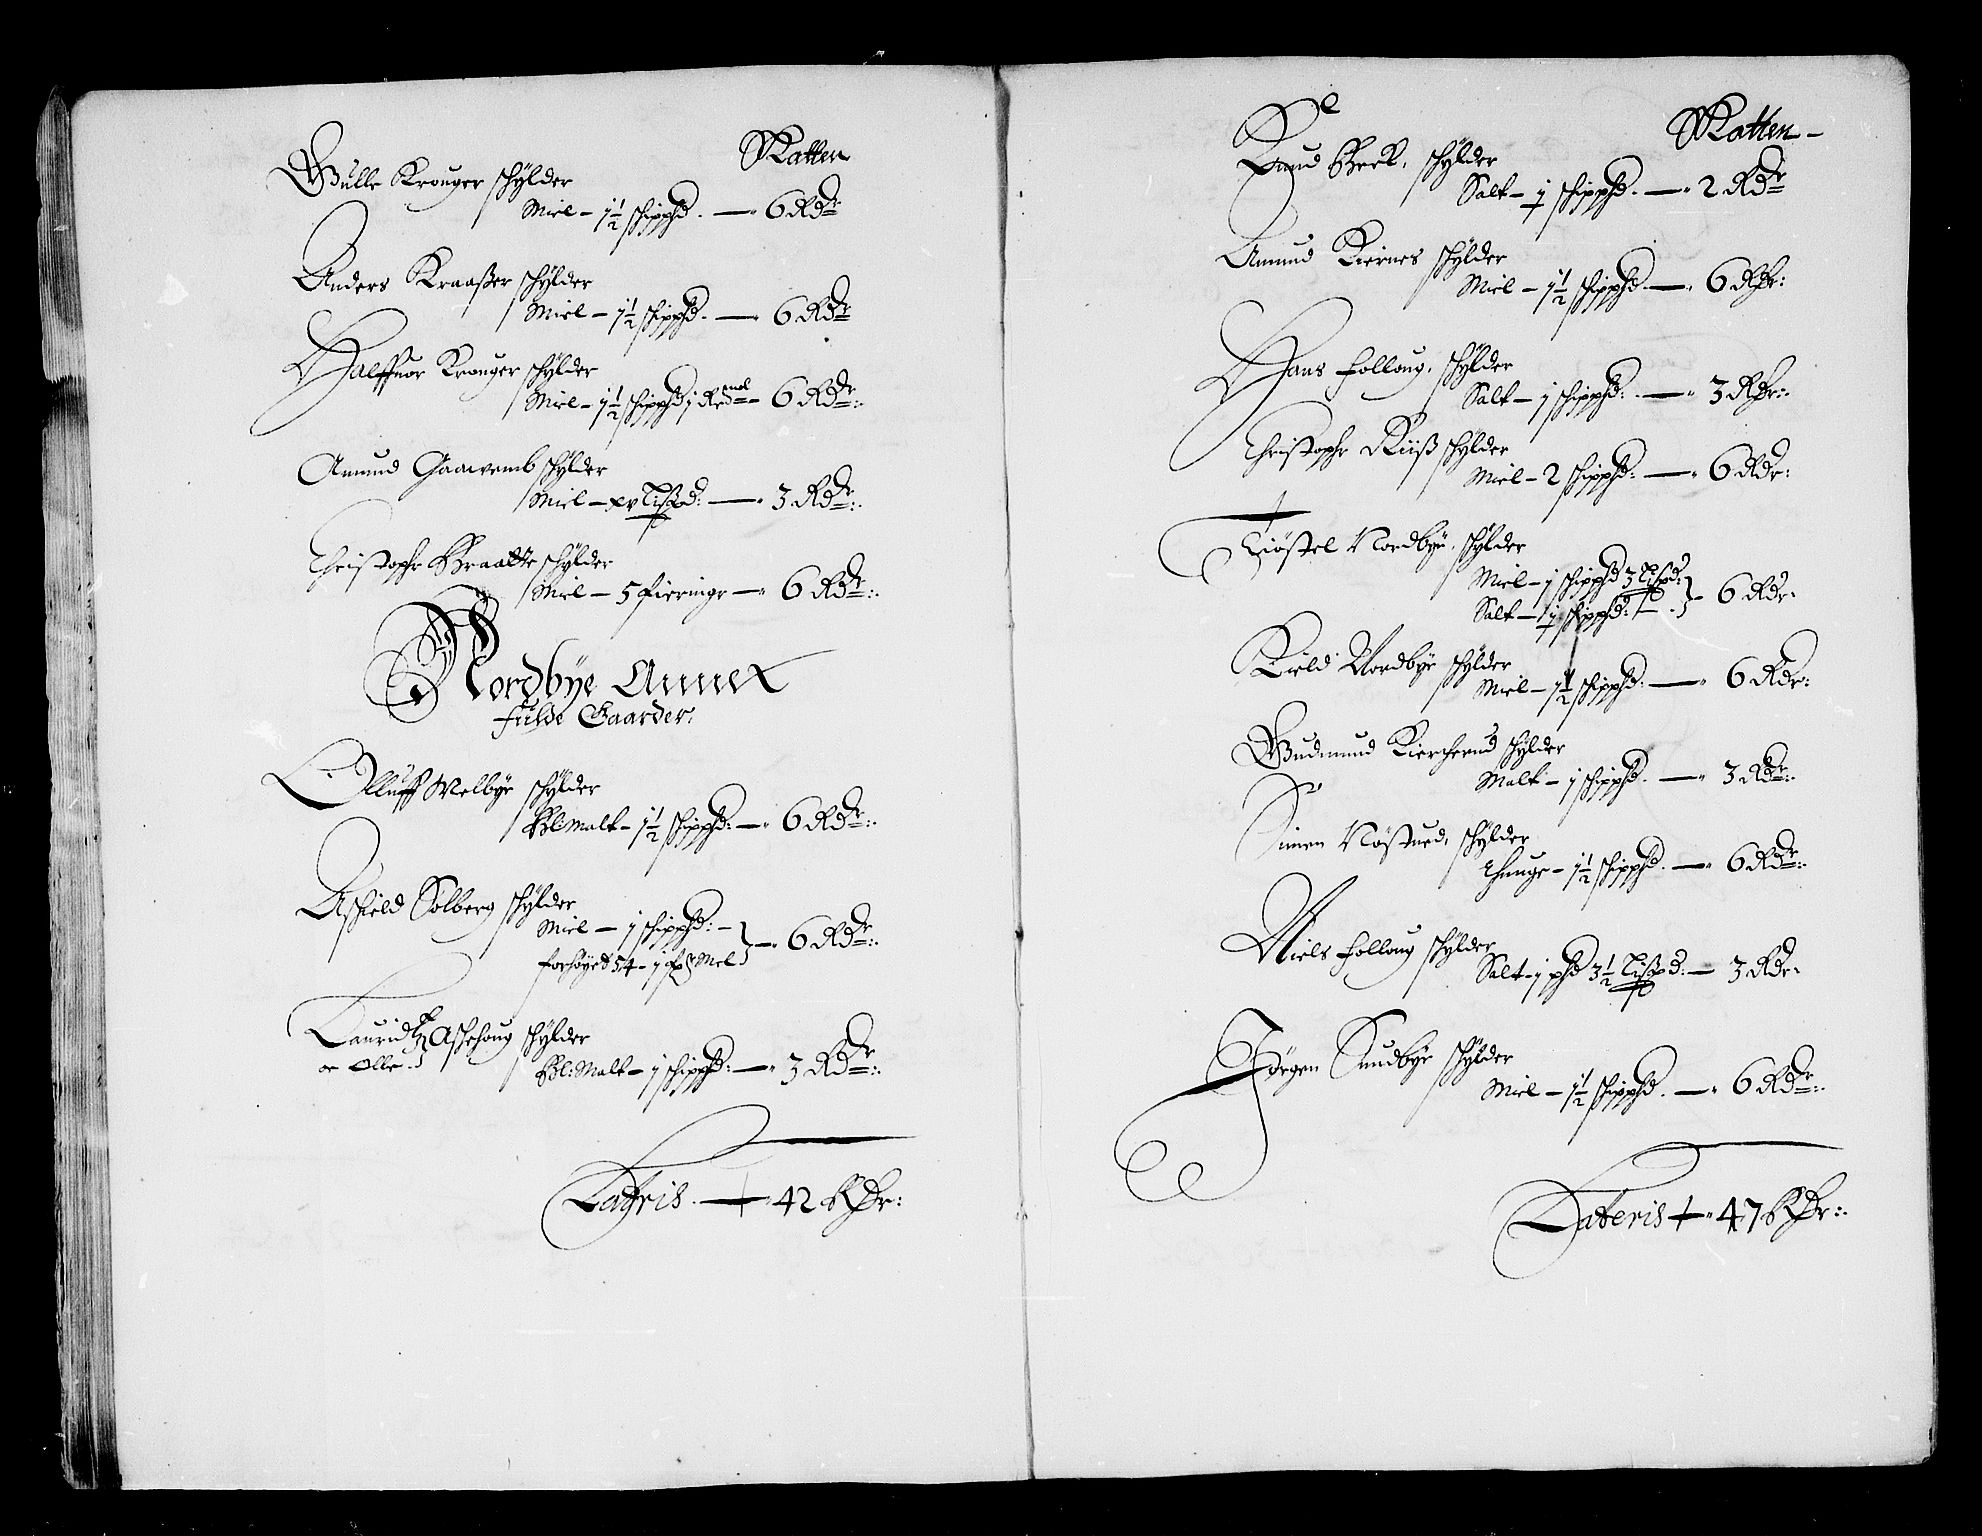 Skatten
Gulle Krouger schylder
Miel – 1½ schippd. — 6 Rdr
Anders Kraaßer schylder
Miel – 1½ schippd. — 6 Rdr
Halffuor Krouger schylder
Miel – 1½ schippd 1 – 6 Rdr:
Amund Gaarvemb schylder
Miel – xv lißpd: — 3 Rdr:
Christopher Braatte schylder
Miel – 5 fieringr — 6 Rdr:
Nordbye Annex
fulde Gaarder.
Olluff Welbye schylder
Bl: Malt – 1½ schippd: — 6 Rdr:
Aschield Solberg schylder
Miel – 1 schippd: –
forhøyed 54 – 1 Mel } — 6 Rdr:
Lauridtz Aschehoug schylder
oc Olle.
Bl: Malt – 1 schippd: — 3 Rdr:
Lateris. — 42 Rdr:
Skatten –
Knud Berk, schylder
Salt – 1 schippd. — 2 Rdr
Amund Kiernes schylder
Miel – 1½ schippd. — 6 Rdr:
Hans follong, schylder
Salt – 1 schippd: — 3 Rdr:
Christopher Riiß schylder
Miel – 2 schippd: — 6 Rdr:
Kiøstel Nordbye, schylder
Miel – 1 schippd 3 lispd:
Salt – 1 schippd: } – 6 Rdr:
Kield Nordbye schylder
Miel – 1½ schippd: — 6 Rdr:
Gudmund Kiercherud schylder
Malt – 1 schippd. — 3 Rdr:
Simen Nøstued, schylder
Thunge – 1½ schippd. — 6 Rdr:
Niels follong schylder
Salt – 1 pd 3½ lißpd: — 3 Rdr:
Jørgen Sundbye schylder
Miel – 1½ schippd. — 6 Rdr:
Lateris — 47 Rdr: